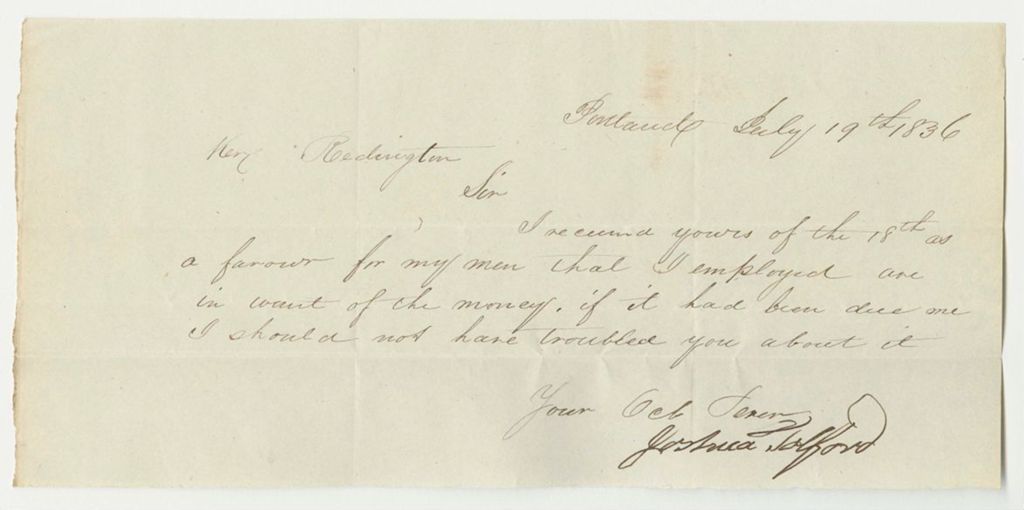 Portland July 19th 1836
Redington
Sir
I received yours of the 18th as
a favour for my men that I employed are
in want of the money. if it had been due me
I should not have troubled you about it
Your Obt Serv
Joshua Tolford